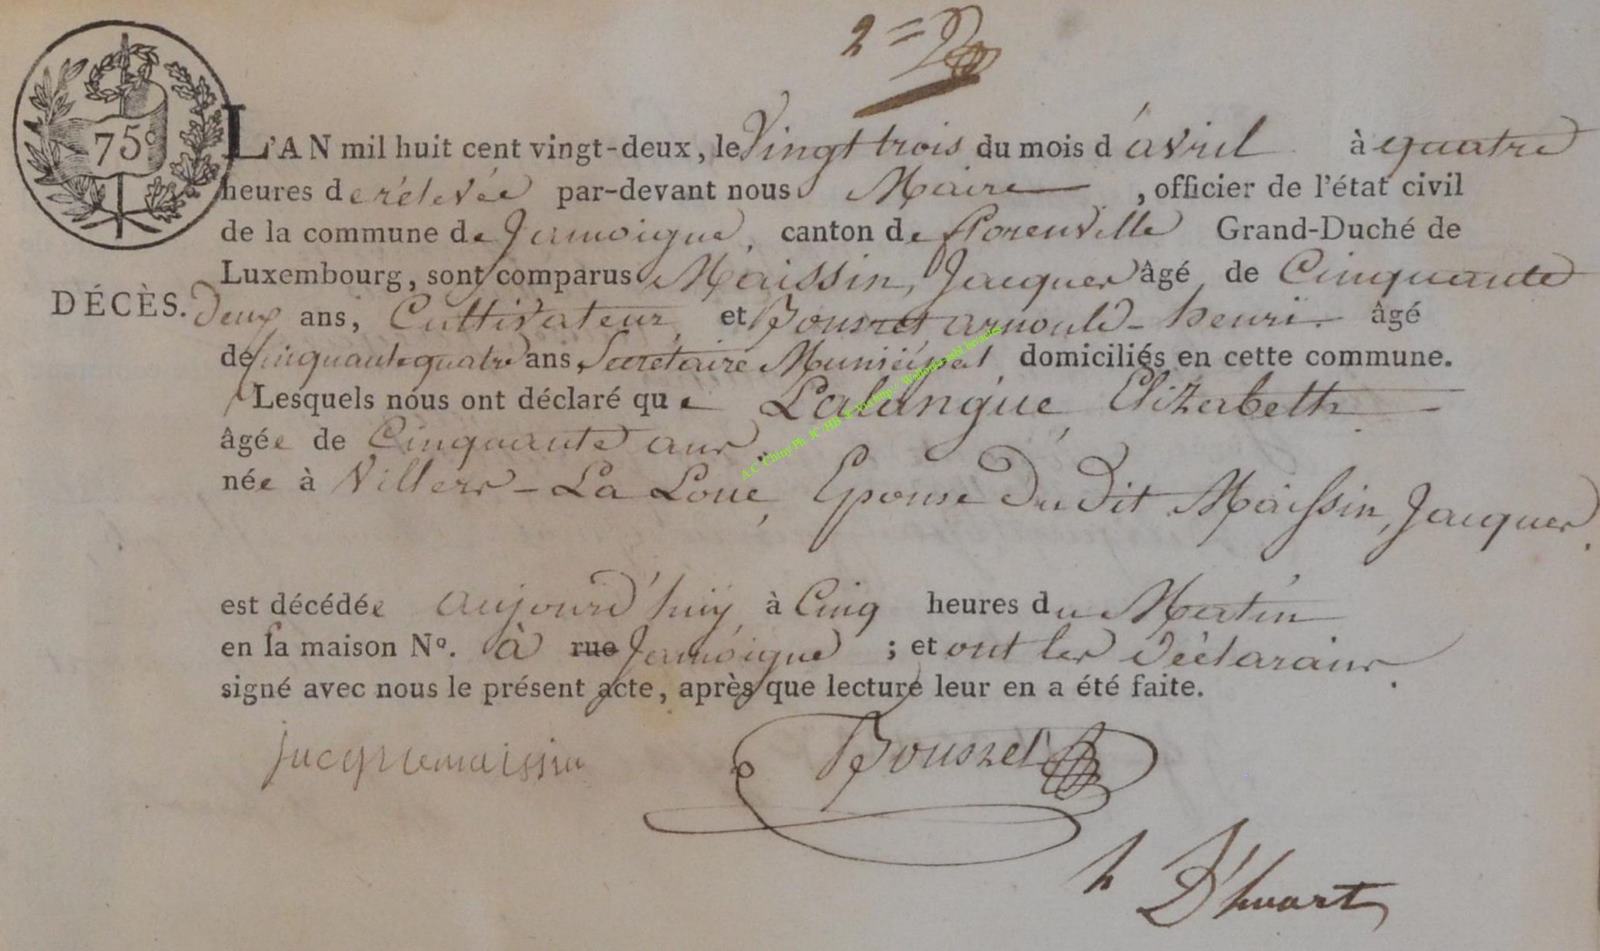 2 = 2
75c
L'AN mil huit cent vingt-deux, le Vingt trois du mois d'avril à quatre
heures de rélevée par-devant nous Maire , officier de l'état civil
de la commune de Jamoigne, canton de florenville Grand-Duché de
Luxembourg, sont comparus Maissin, Jacques âgé de Cinquante
DÉCÈS. deux ans, Cultivateur, et Bousret arnould-henri. âgé
de cinquante quatre ans Secrétaire Municipal domiciliés en cette commune.
Lesquels nous ont déclaré que Lalangue, Elizabeth
âgée de Cinquante ans
née à Villers-La Loue, Epouse Du Dit Maissin, Jacques.
est décédée aujourd'huÿ, à Cinq heures du Matin
en sa maison No. à rue Jamoigne ; et ont les Déclarans
signé avec nous le présent acte, après que lecture leur en a été faite.
jacquemaissin Bousret
h D'huart